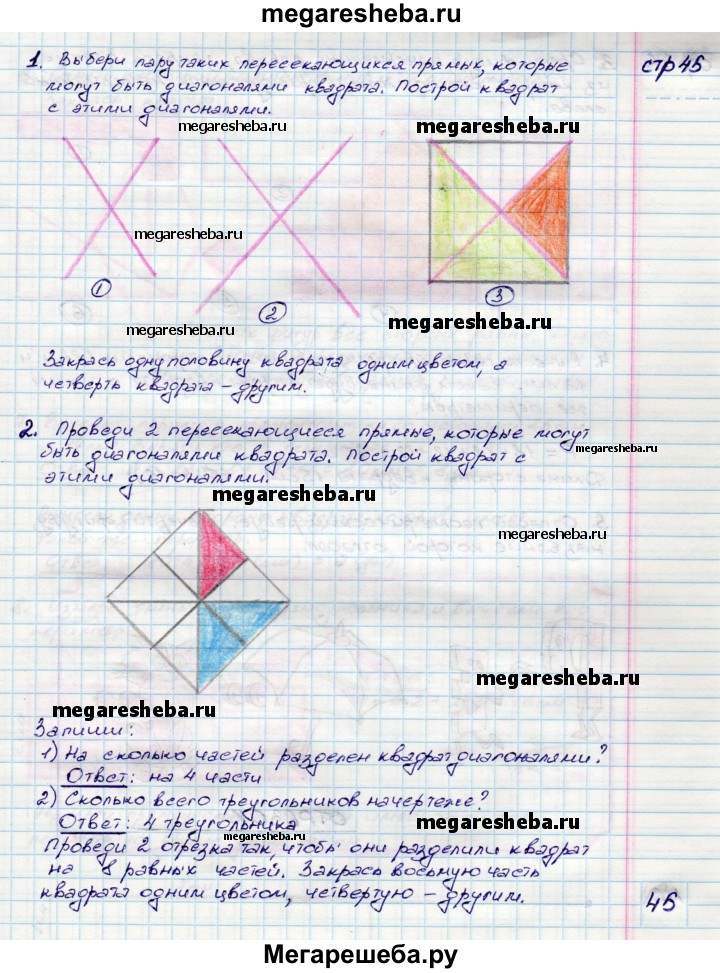 megaresheba.ru
1. Выбери пару таких пересекающихся прямых, которые
стр 45
могут быть диагоналями квадрата. Построй квадрат
с этими диагоналями.
megaresheba.ru
megaresheba.ru
megaresheba.ru
1
2
3
megaresheba.ru
megaresheba.ru
Закрась одну половину квадрата одним цветом, а
четверть квадрата – другим.
2. Проведи 2 пересекающиеся прямые, которые могут
быть диагоналями квадрата. Построй квадрат с
этими диагоналями.
megaresheba.ru
megaresheba.ru
megaresheba.ru
megaresheba.ru
Запиши:
1) На сколько частей разделен квадрат диагоналями?
Ответ: на 4 части
2) Сколько всего треугольников на чертеже?
Ответ: 4 треугольника
megaresheba.ru
megaresheba.ru
Проведи 2 отрезка так, чтобы они разделили квадрат
на 8 равных частей. Закрась восьмую часть
квадрата одним цветом, четвертую – другим.
45
Мегарешеба.ру